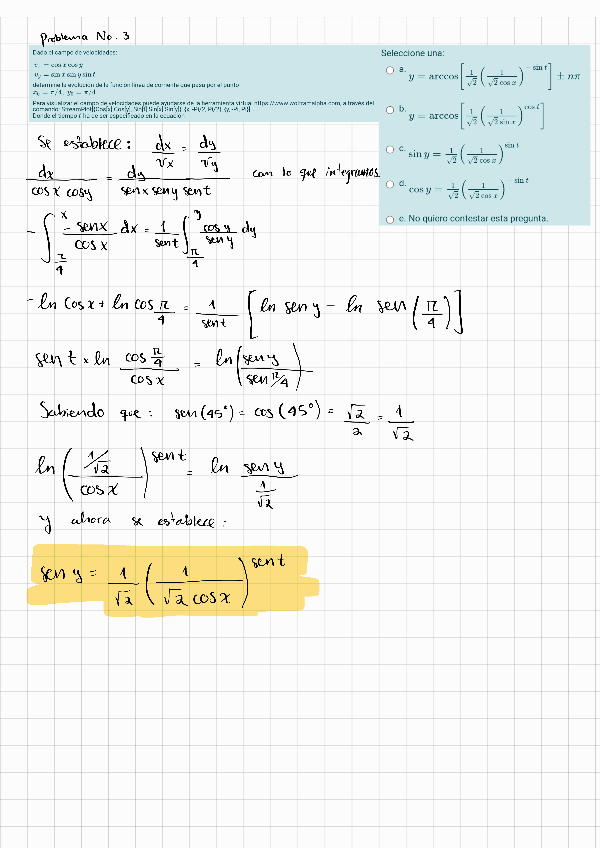 Problema No. 3
Dado el campo de velocidades:
v_x = cos x cos y
v_y = sin x sin y sin t
determine la evolución de la función línea de corriente que pasa por el punto
x_0 = π/4, y_0 = π/4
Para visualizar el campo de velocidades puede ayudarse de la herramienta virtual https://www.wolframalpha.com, a través del
comando: StreamPlot[{Cos[x] Cos[y], Sin[t] Sin[x] Sin[y]}, {x,-Pi/2, Pi/2}, {y, -Pi, Pi}]
Donde el tiempo t ha de ser especificado en la ecuación
Seleccione una:
a. y = arccos [ 1/√2 ( 1/(√2 cos x) )^(− sin t) ] ± nπ
b. y = arccos [ 1/√2 ( 1/(√2 sin x) )^(cos t) ]
c. sin y = 1/√2 ( 1/(√2 cos x) )^(sin t)
d. cos y = 1/√2 ( 1/(√2 cos x) )^(− sin t)
e. No quiero contestar esta pregunta.
Se establece: dx/Vx = dy/Vy
dx/(cos x cos y) = dy/(sen x sen y sen t) con lo que integramos
- ∫_(π/4)^x (-sen x)/(cos x) dx = 1/(sen t) ∫_(π/4)^y (cos y)/(sen y) dy
- ln cos x + ln cos π/4 = 1/(sen t) [ ln sen y - ln sen (π/4) ]
sen t × ln (cos π/4)/(cos x) = ln ( (sen y)/(sen π/4) )
Sabiendo que: sen (45°) = cos (45°) = √2/2 = 1/√2
ln ( (1/√2)/(cos x) )^(sen t) = ln (sen y)/(1/√2)
y ahora se establece:
sen y = 1/√2 ( 1/(√2 cos x) )^(sen t)